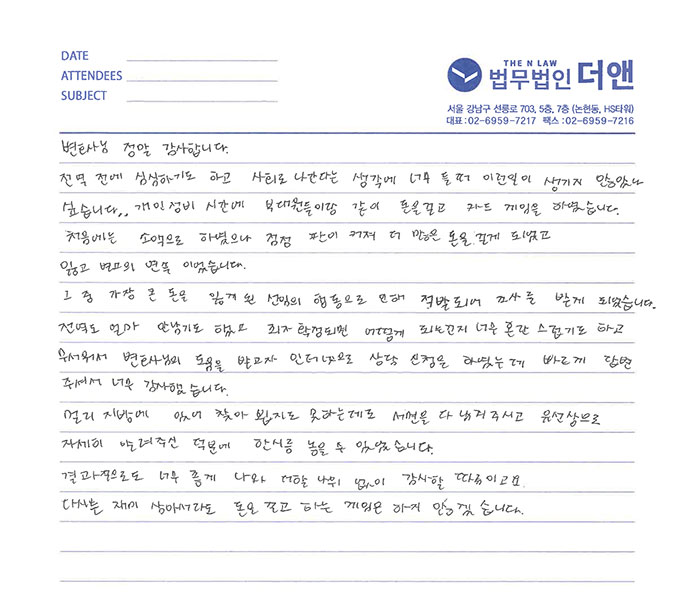 DATE
ATTENDEES
SUBJECT
THE N LAW
법무법인 더앤
서울 강남구 선릉로 703, 5층, 7층 (논현동, HS타워)
대표 : 02-6959-7217 팩스 : 02-6959-7216
변호사님 정말 감사합니다.
전역 전에 심심하기도 하고 사회로 나간다는 생각에 너무 들떠 이런일이 생기지 않았나
싶습니다,, 개인정비 시간에 부대원들이랑 같이 돈을걸고 카드 게임을 하였습니다.
처음에는 소액으로 하였으나 점점 판이 커져 더 많은 돈을 걸게 되었고
잃고 따고의 연속 이었습니다.
그 중 가장 큰 돈을 잃게 된 선임의 행동으로 인해 적발되어 조사를 받게 되었습니다.
전역도 얼마 안남기도 했고 죄가 확정되면 어떻게 되는건지 너무 혼란 스럽기도 하고
무서워서 변호사님의 도움을 받고자 인터넷으로 상담 신청을 하였는데 빠르게 답변
주셔서 너무 감사했습니다.
멀리 지방에 있어 찾아 뵙지도 못하는데도 서면을 다 남겨주시고 유선상으로
자세히 알려주신 덕분에 한시름 놓을 수 있었습니다.
결과적으로도 너무 좋게 나와 더할 나위 없이 감사할 따름이고요
다시는 재미 삼아서라도 돈을 걸고 하는 게임은 하지 않겠습니다.